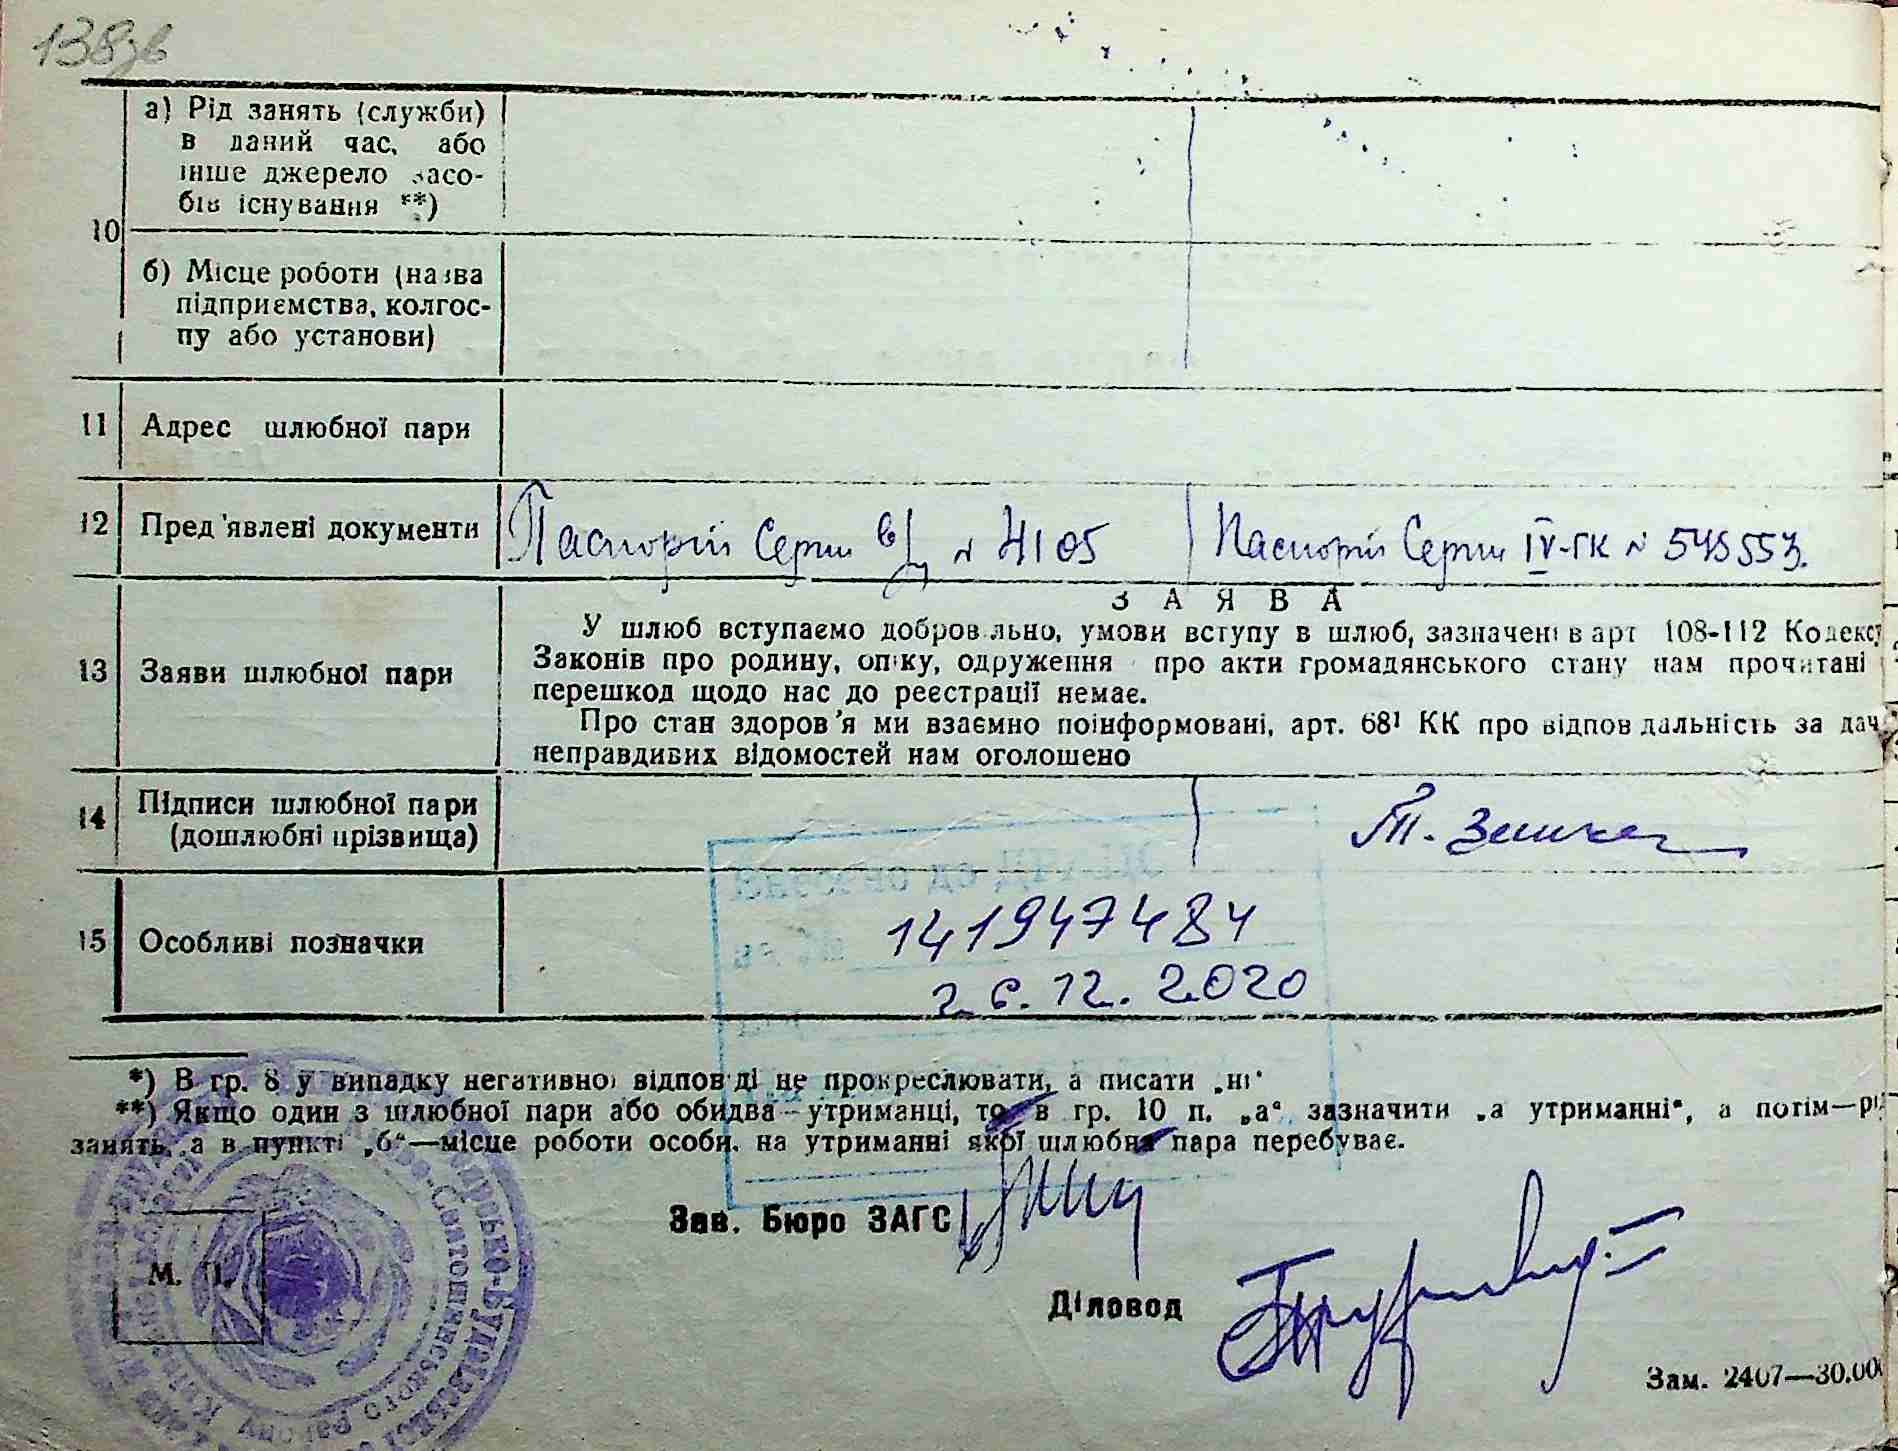 138зв
а) Рід занять (служби)
в даний час, або
інше джерело засо-
бів існування **)
10
б) Місце роботи (назва
підприємства, колгос-
пу або установи)
11 Адрес шлюбної пари
12 Пред'явлені документи Паспорт Серти № 4105 Паспорт Серти IV-ГК № 545553.
ЗАЯВА
У шлюб вступаємо добровільно, умови вступу в шлюб, зазначені в арт 108-112 Кодексу
13 Заяви шлюбної пари Законів про родину, опіку, одруження про акти громадянського стану нам прочитані
перешкод щодо нас до реєстрації немає.
Про стан здоров'я ми взаємно поінформовані, арт. 68¹ КК про відповідальність за дач
неправдивих відомостей нам оголошено
14 Підписи шлюбної пари
(дошлюбні прізвища)
15 Особливі позначки 141947484
26.12.2020
*) В гр. 8 у випадку негативної відповіді не прокреслювати, а писати „ні“
**) Якщо один з шлюбної пари або обидва—утриманці, то в гр. 10 п. „а“ зазначити „а утриманні“, а потім—рі
занять, а в пункті „б“—місце роботи особи, на утриманні якої шлюбна пара перебуває.
Зав. Бюро ЗАГС
М. П.
Діловод
Зам. 2407—30.000